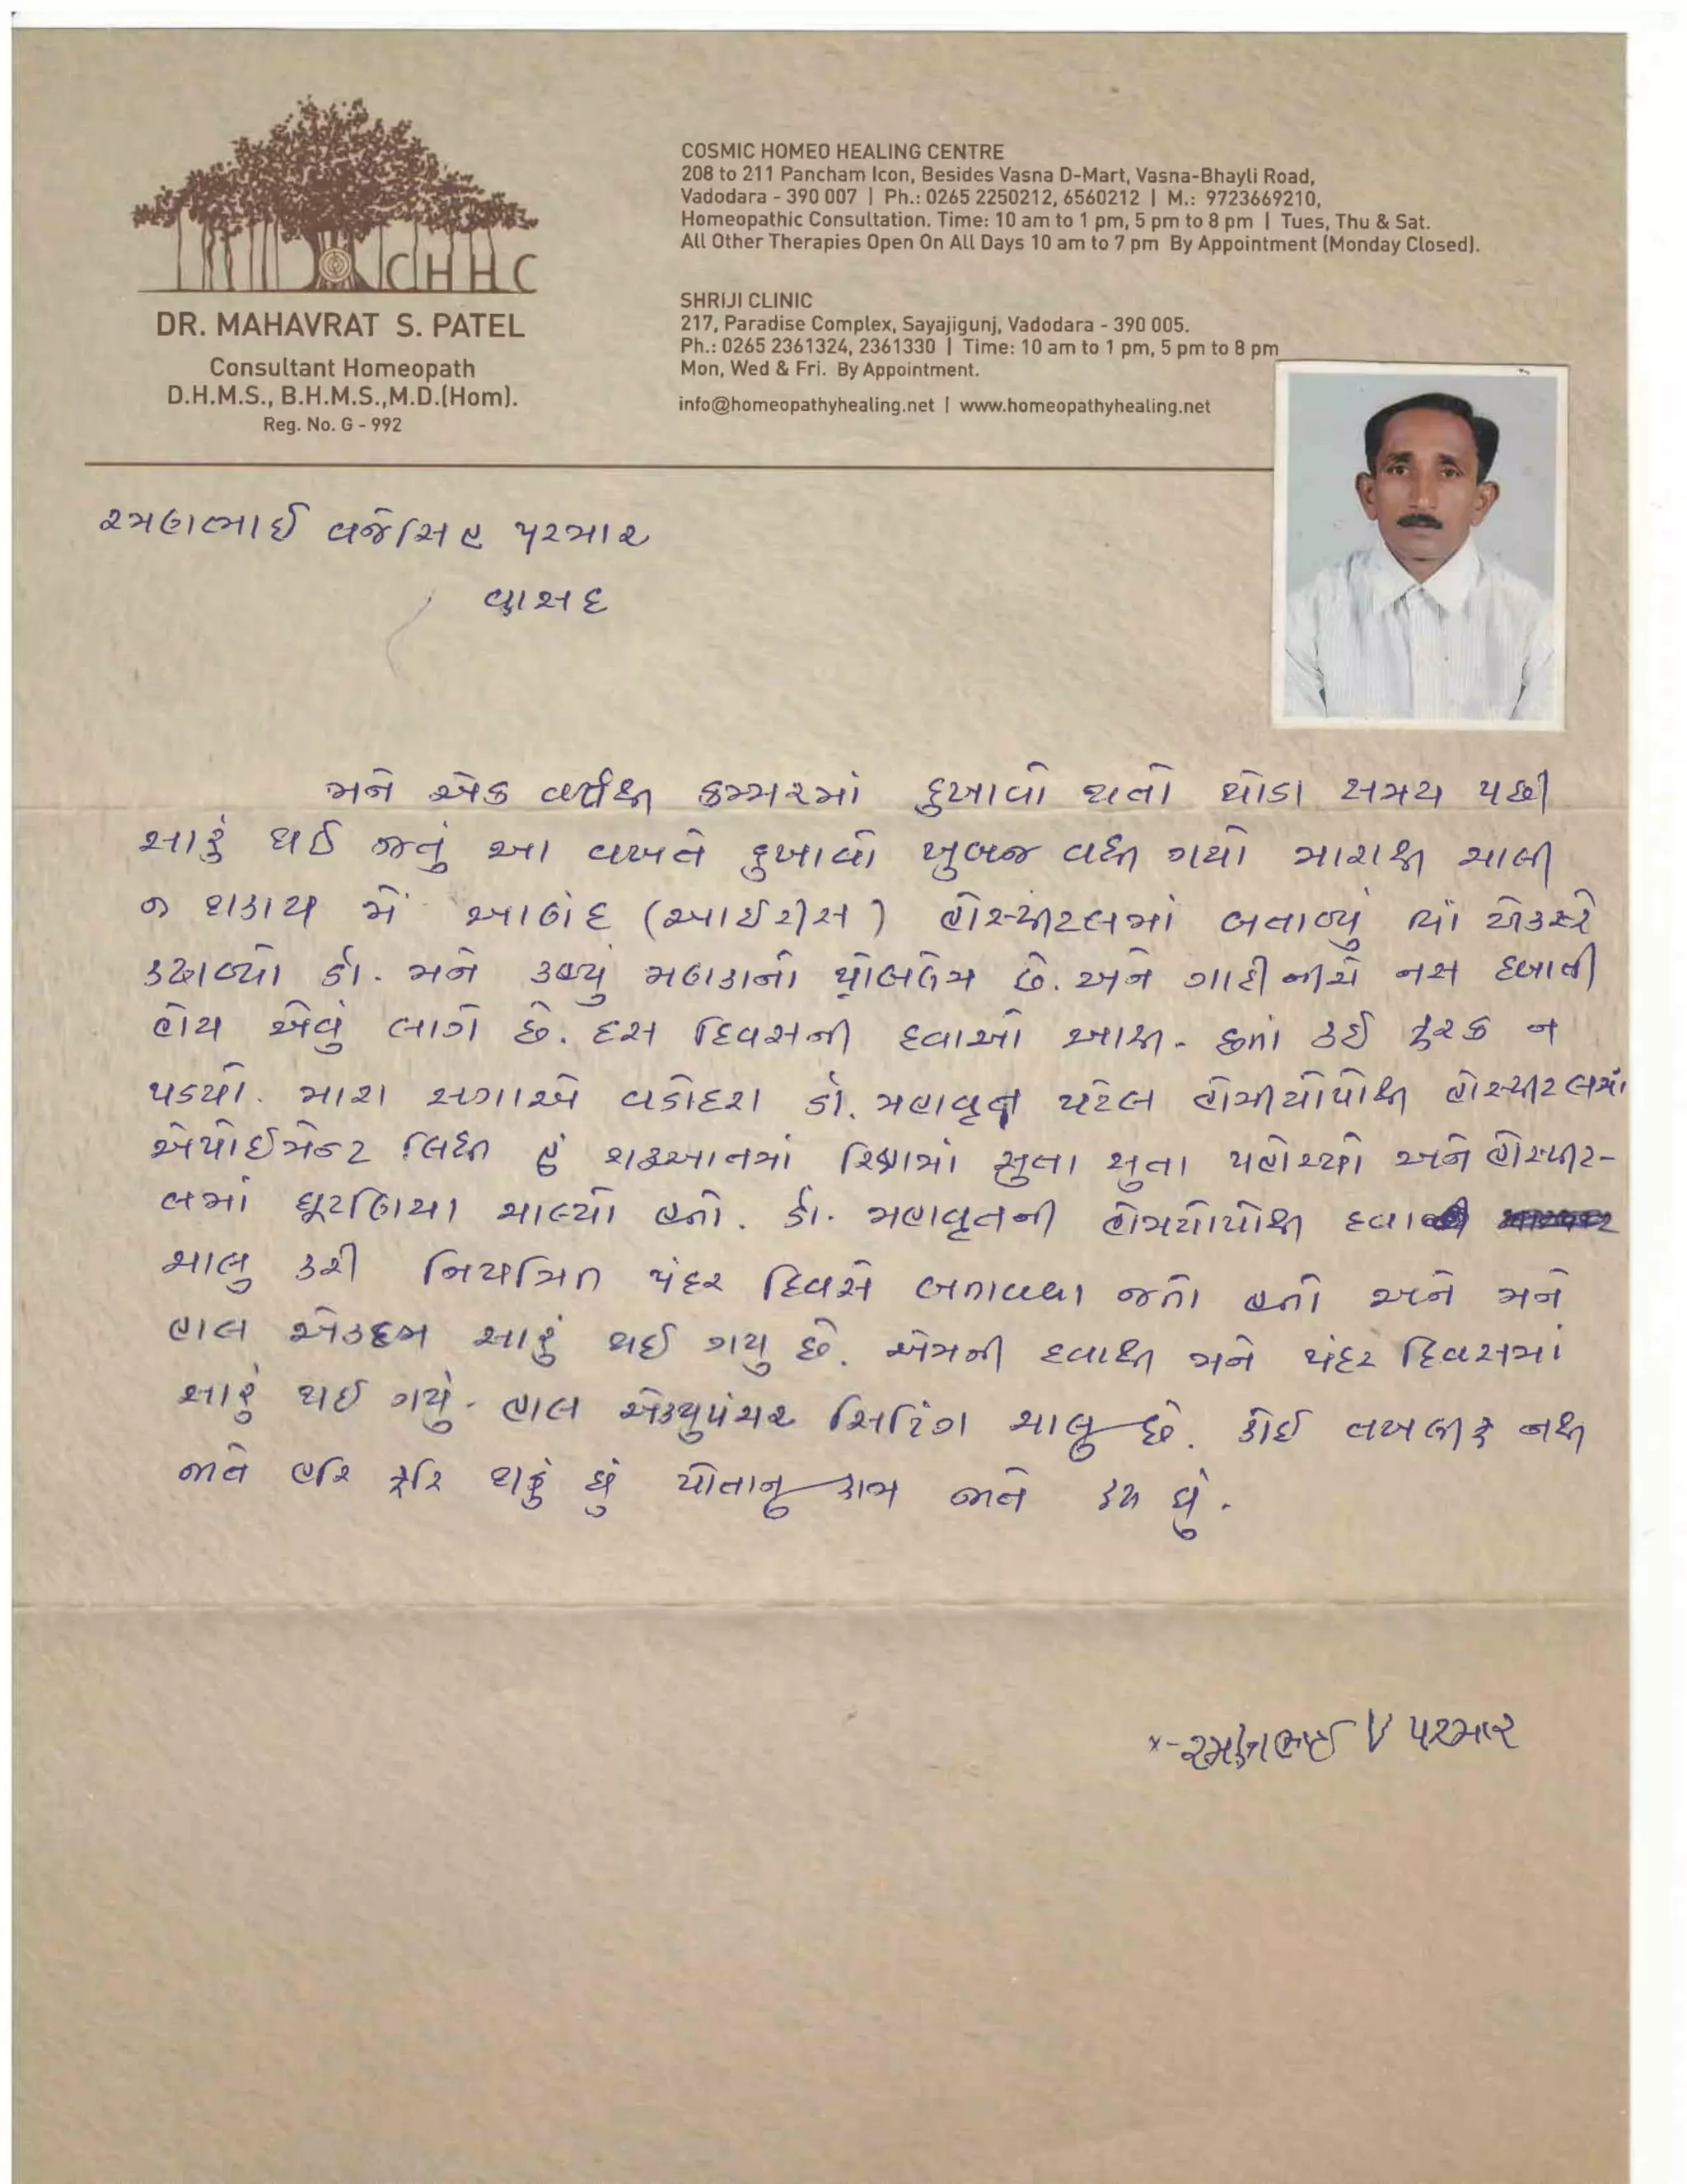 CHHC
DR. MAHAVRAT S. PATEL
Consultant Homeopath
D.H.M.S., B.H.M.S.,M.D.(Hom).
Reg. No. G - 992
COSMIC HOMEO HEALING CENTRE
208 to 211 Pancham Icon, Besides Vasna D-Mart, Vasna-Bhayli Road,
Vadodara - 390 007 | Ph.: 0265 2250212, 6560212 | M.: 9723669210,
Homeopathic Consultation. Time: 10 am to 1 pm, 5 pm to 8 pm | Tues, Thu & Sat.
All Other Therapies Open On All Days 10 am to 7 pm By Appointment (Monday Closed).
SHRIJI CLINIC
217, Paradise Complex, Sayajigunj, Vadodara - 390 005.
Ph.: 0265 2361324, 2361330 | Time: 10 am to 1 pm, 5 pm to 8 pm
Mon, Wed & Fri. By Appointment.
info@homeopathyhealing.net | www.homeopathyhealing.net
રમણભાઈ વજેસિંહ પરમાર
વાસદ
મને એક વર્ષથી કમ્મરમાં દુખાવો થતો થોડા સમય પછી
સારું થઈ જતું આ વખતે દુખાવો ખુબજ વધી ગયો મારાથી ચાલી
ન શકાય મેં આણંદ (આઈરીસ) હોસ્પીટલમાં બતાવ્યું ત્યાં એકસરે
કઢાવ્યો ડૉ. મને કહ્યું મણકાનો પ્રોબલેમ છે. અને ગાદી નીચે નસ દબાતી
હોય એવું લાગે છે. દસ દિવસની દવાઓ આપી. છતાં કંઈ ફરક ન
પડયો. મારા સગાએ વડોદરા ડો. મહાવૃત પટેલ હોમીયોપેથી હોસ્પીટલમાં
એપોઈમેન્ટ લિધી હું શરૂઆતમાં રિક્ષામાં સુતા સુતા પહોચ્યો અને હોસ્પીટ-
લમાં ઘૂટણિયા ચાલ્યો હતો. ડૉ. મહાવૃતની હોમયોપેથી દવા
ચાલુ કરી નિયમિત પંદર દિવસે બતાવવા જતો હતો અને મને
હાલ એકદમ સારું થઈ ગયુ છે. એમની દવાથી મને પંદર દિવસમાં
સારું થઈ ગયું. હાલ એક્યુપંચર સિટિંગ ચાલુ છે. કોઈ તખલીફ નથી
જાતે હરિ ફરિ શકું છું પોતાનુ કામ જાતે કરૂ છું.
x-રમણભાઈ V પરમાર